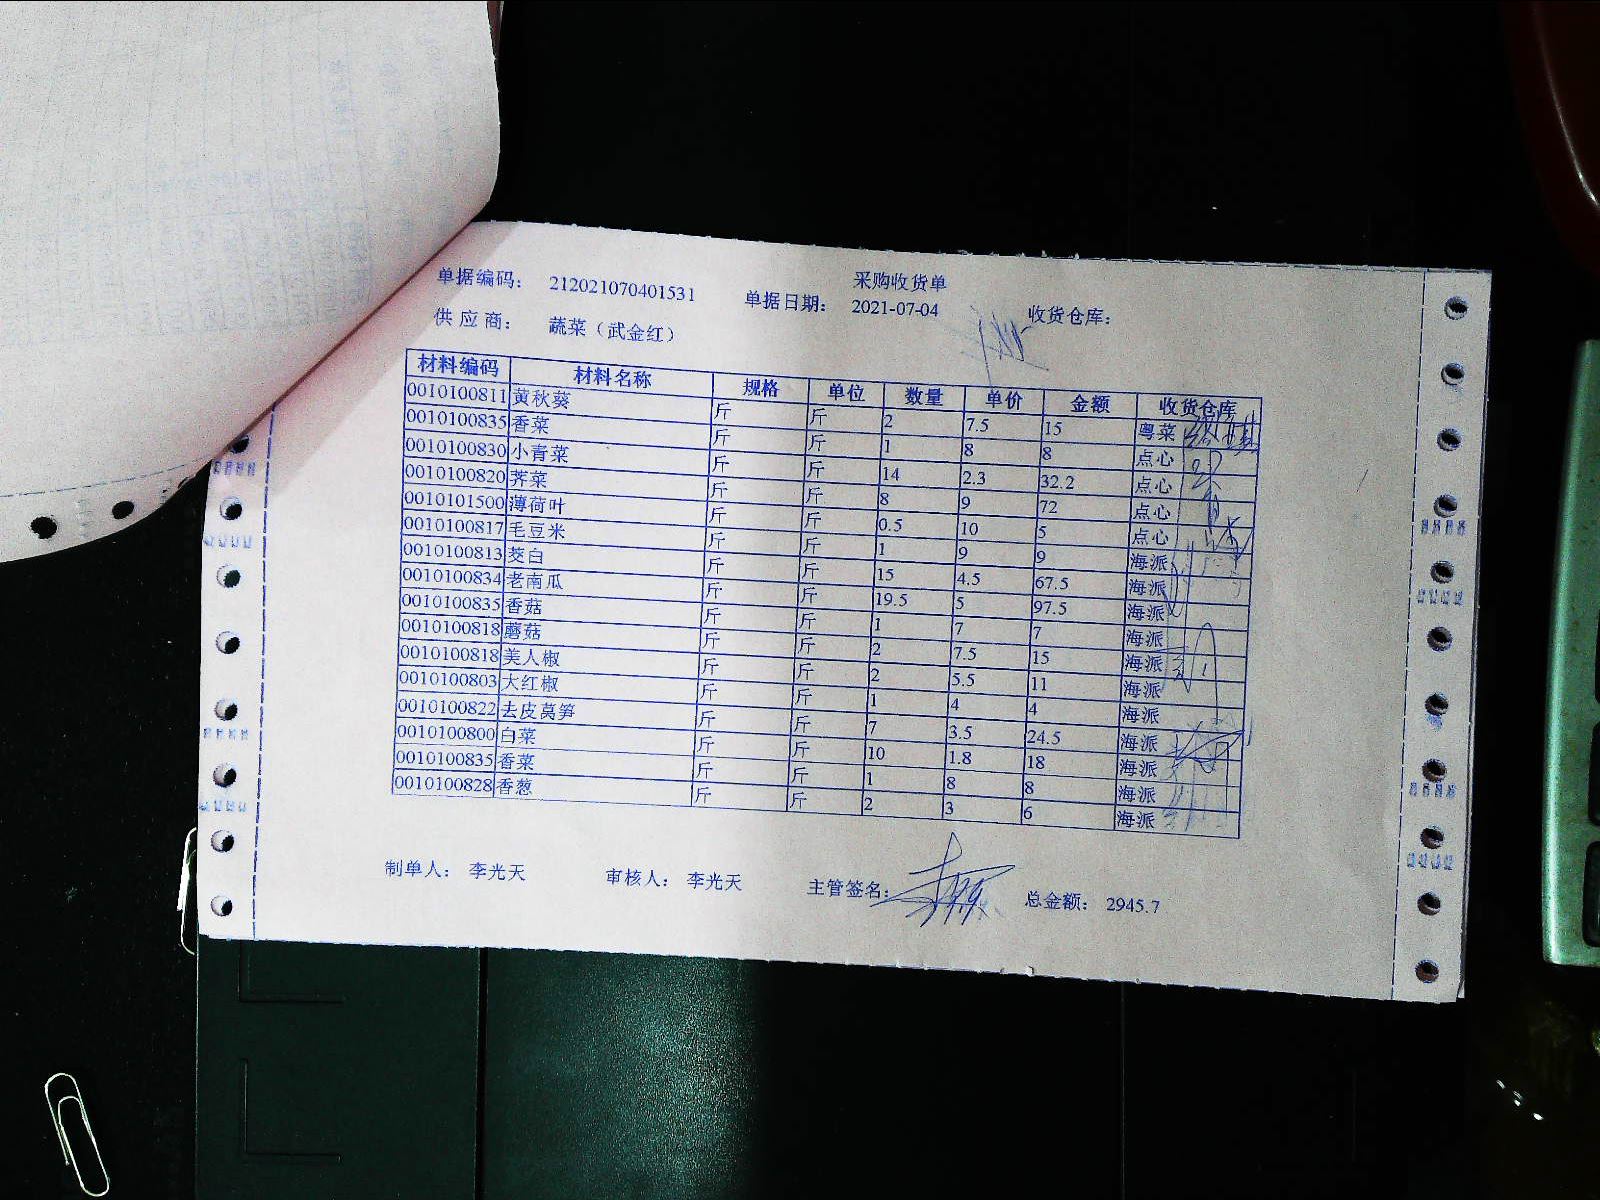 采购收货单
单据编码： 212021070401531 单据日期： 2021-07-04 收货仓库：
供应商： 蔬菜（武金红）
材料编码 材料名称 规格 单位 数量 单价 金额 收货仓库
0010100811 黄秋葵 斤 斤 2 7.5 15 粤菜
0010100835 香菜 斤 斤 1 8 8 点心
0010100830 小青菜 斤 斤 14 2.3 32.2 点心
0010100820 荠菜 斤 斤 8 9 72 点心
0010101500 薄荷叶 斤 斤 0.5 10 5 点心
0010100817 毛豆米 斤 斤 1 9 9 海派
0010100813 茭白 斤 斤 15 4.5 67.5 海派
0010100834 老南瓜 斤 斤 19.5 5 97.5 海派
0010100835 香菇 斤 斤 1 7 7 海派
0010100818 蘑菇 斤 斤 2 7.5 15 海派
0010100818 美人椒 斤 斤 2 5.5 11 海派
0010100803 大红椒 斤 斤 1 4 4 海派
0010100822 去皮莴笋 斤 斤 7 3.5 24.5 海派
0010100800 白菜 斤 斤 10 1.8 18 海派
0010100835 香菜 斤 斤 1 8 8 海派
0010100828 香葱 斤 斤 2 3 6 海派
制单人： 李光天 审核人： 李光天 主管签名： 总金额： 2945.7